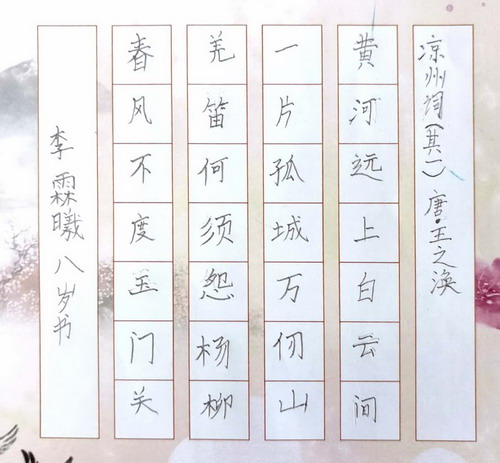 凉州词(其一) 唐·王之涣
黄河远上白云间
一片孤城万仞山
羌笛何须怨杨柳
春风不度玉门关
李霖曦 八岁书